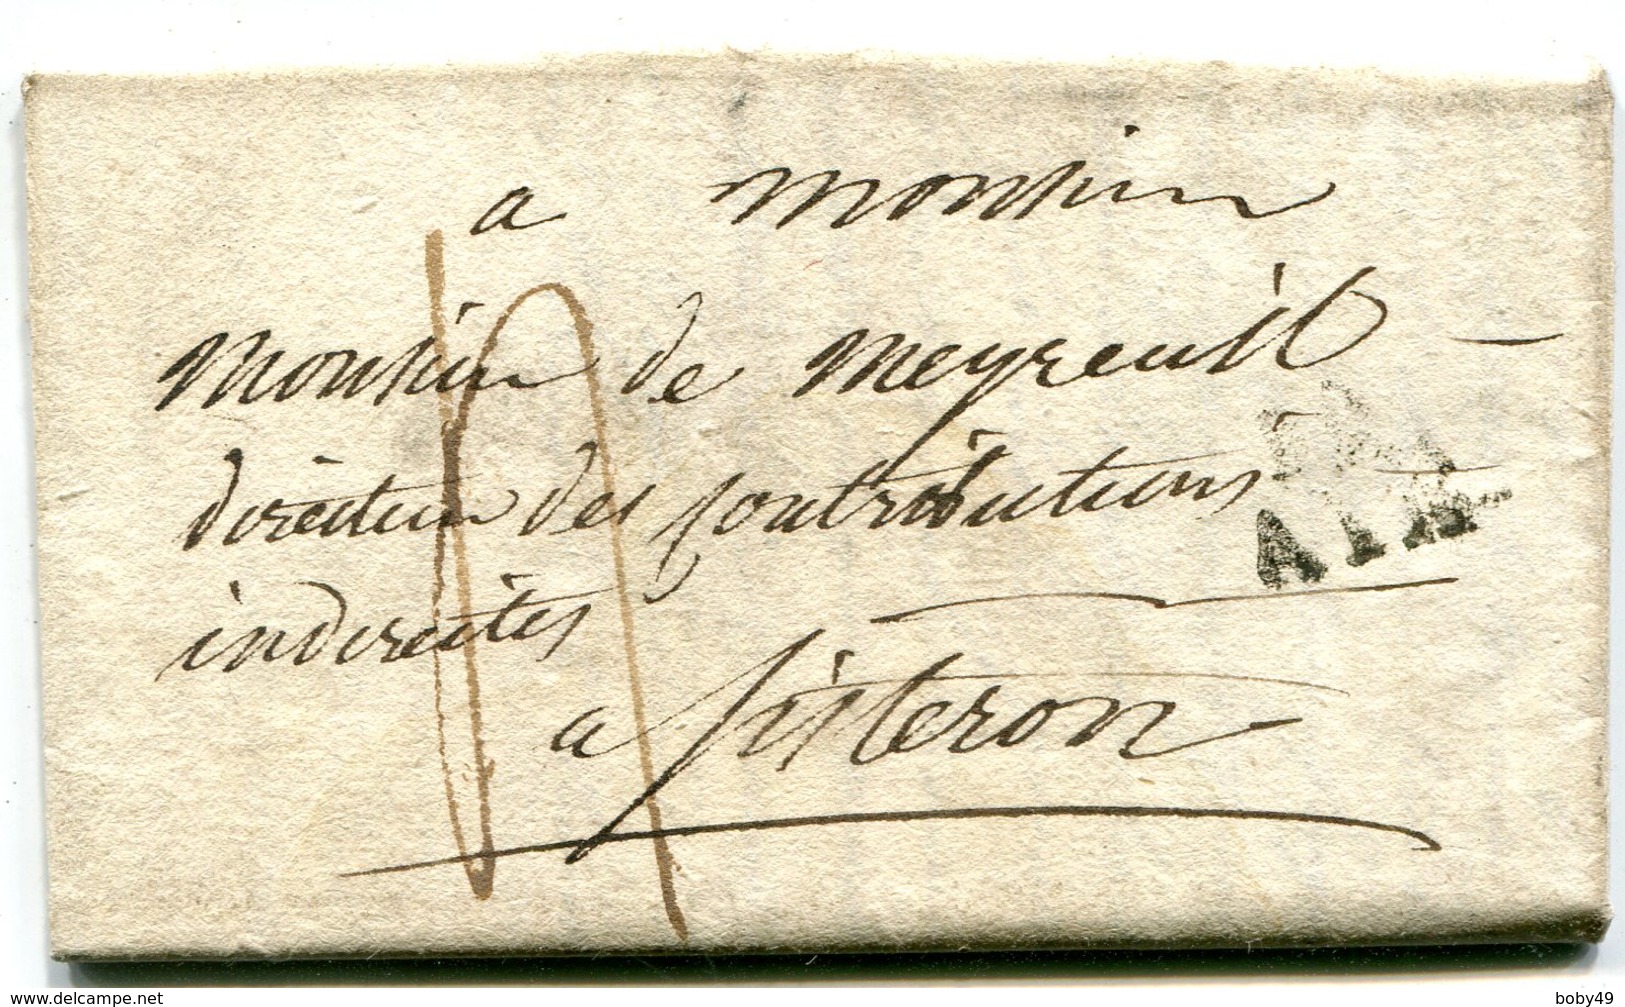 a Monsieur
Monsieur de Meyreuil
directeur des contributions
indirectes
a Sisteron
AIX
www.delcampe.net
boby49